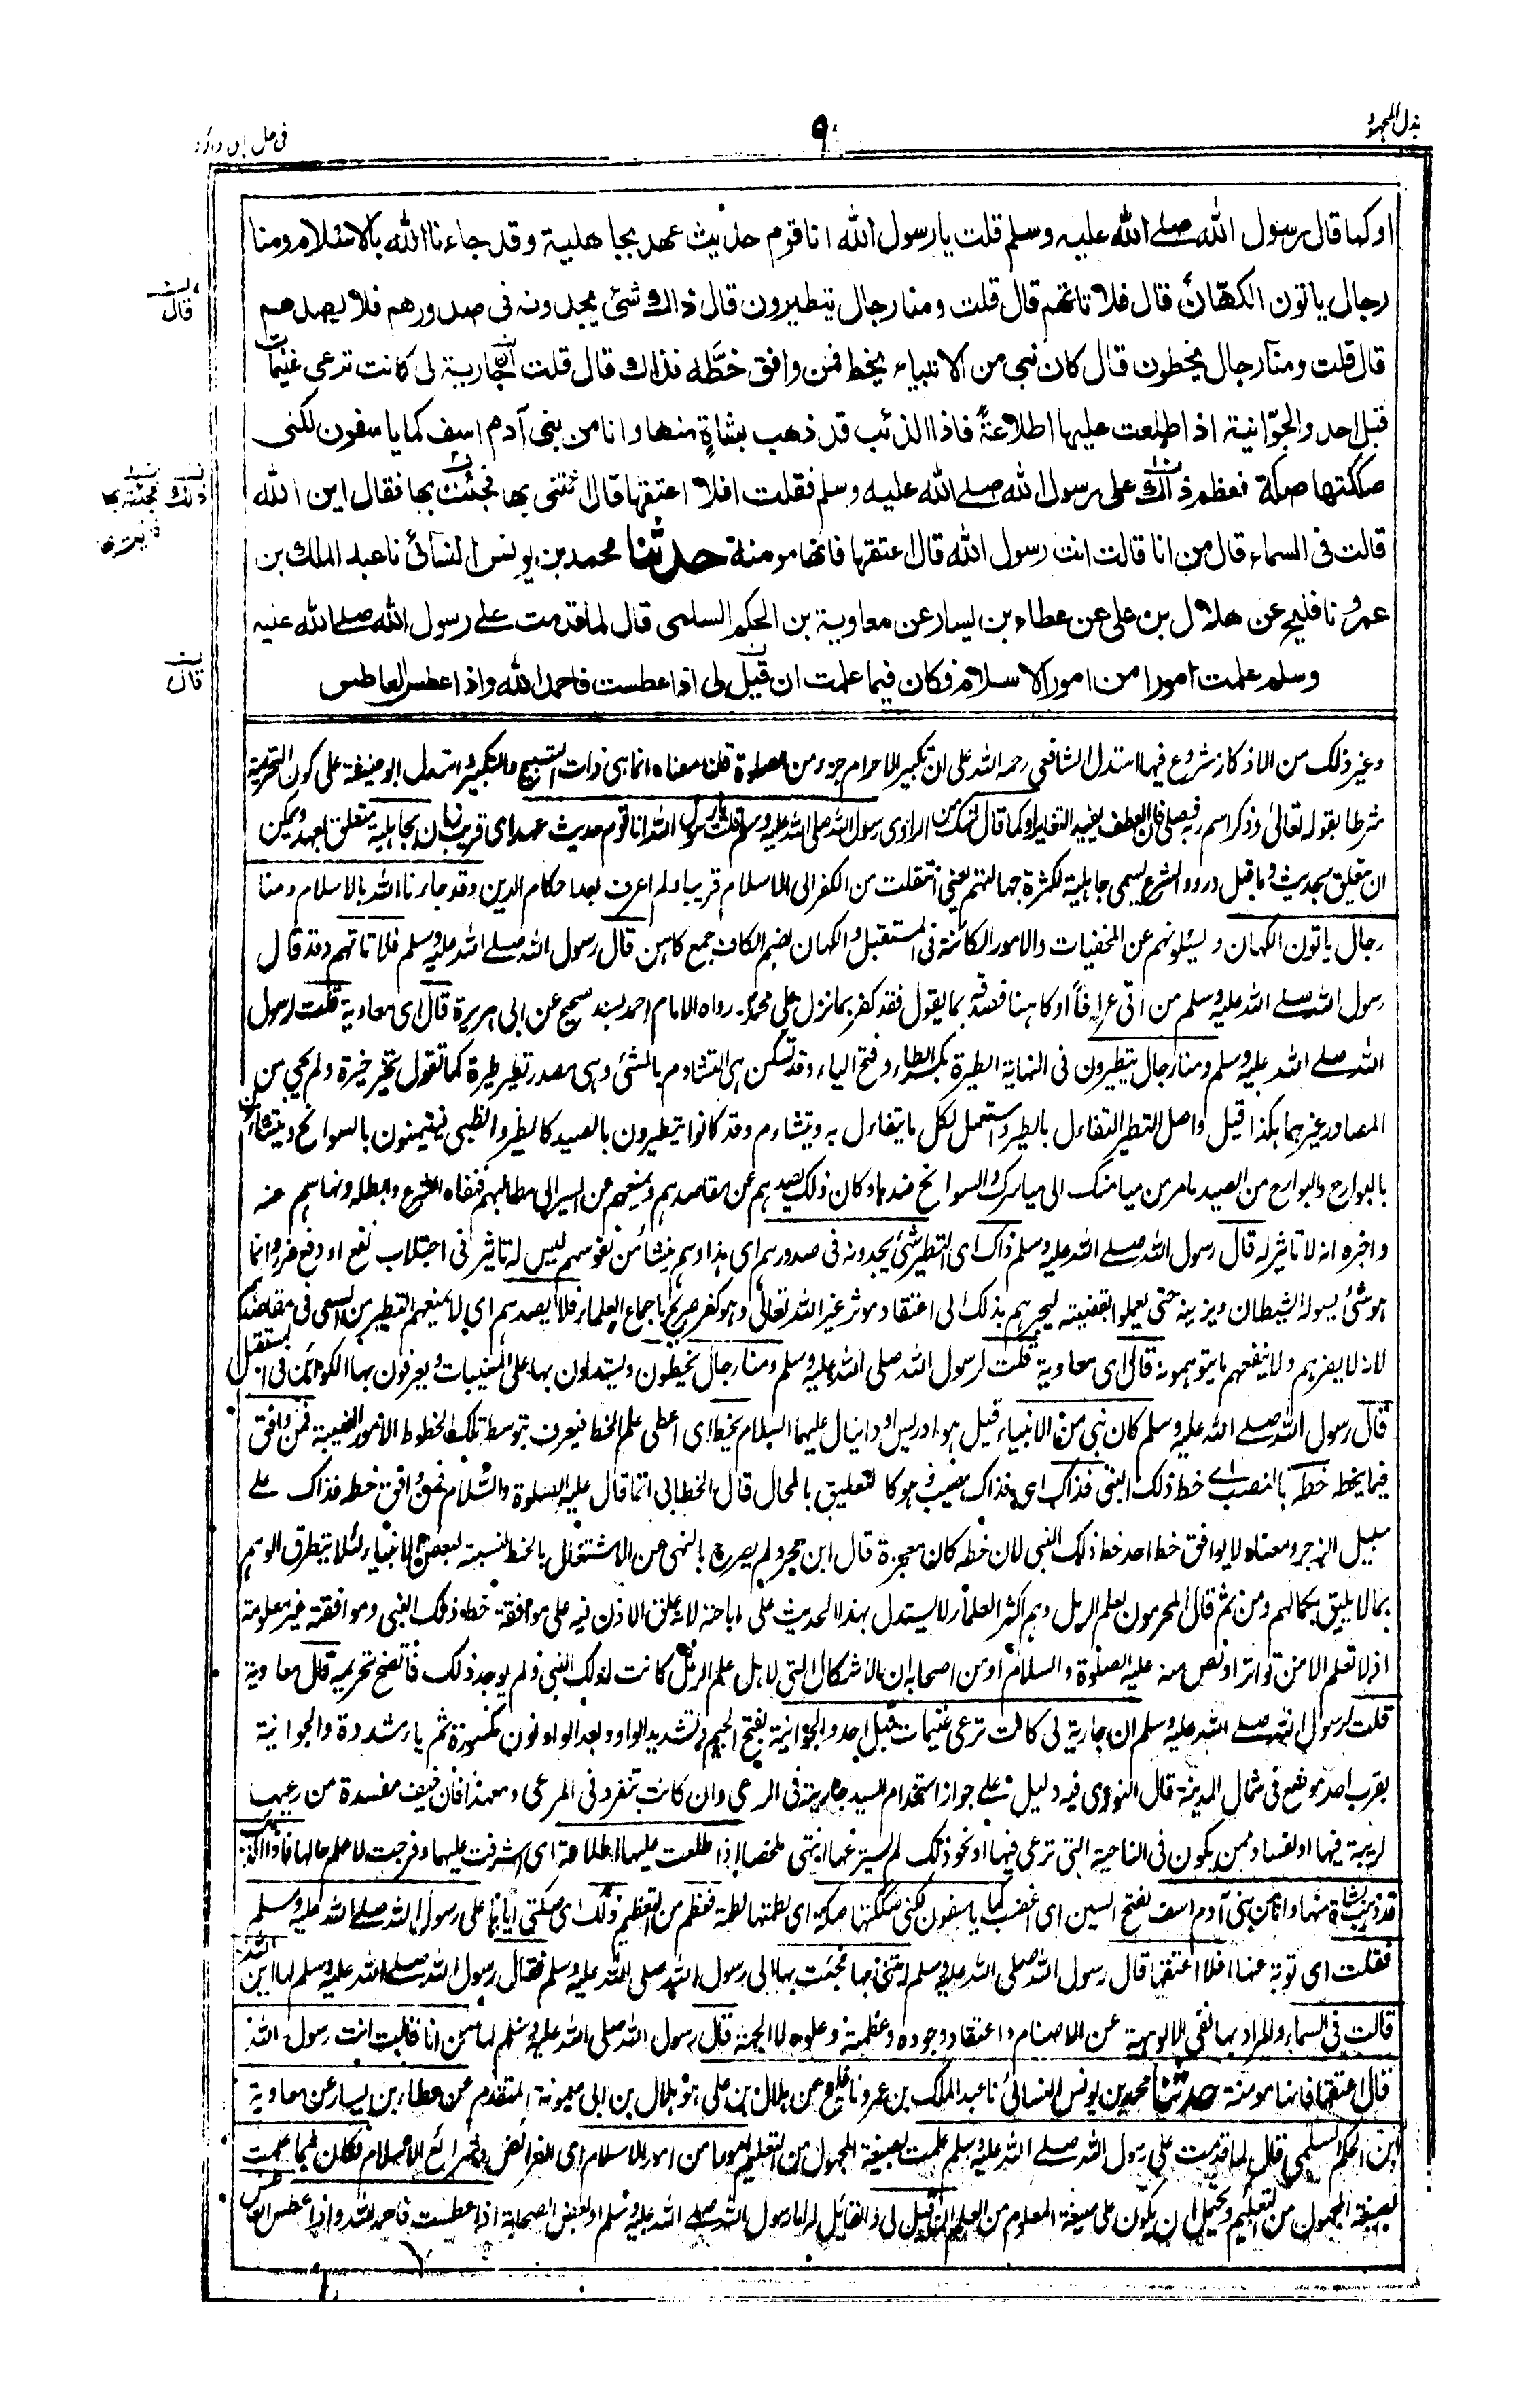 بذل المجهود
٩٠
في حل ابي داؤد
او كما قال رسول الله صلے الله عليه وسلم قلت يا رسول الله انا قوم حديث عهد بجاهلية وقد جاءنا الله بالاسلام ومنا
رجال ياتون الكهّان قال فلا تاتهم قال قلت ومنا رجال يتطيرون قال ذاك شئ يجدونه في صدورهم فلا يصدهم
قال
قال قلت ومنا رجال يخطون قال كان نبي من الانبياء يخط فمن وافق خطَّه فذاك قال قلت ان جارية لي كانت ترعى غنيمات
قبل احد والجوّانية اذ اطلعت عليها اطلاعةً فاذا الذئب قد ذهب بشاةٍ منها وانا من بني آدم اسف كما ياسفون لكني
صككتها صكة فعظم ذاك على رسول الله صلے الله عليه وسلم فقلت افلا اعتقها قال ائتني بها فجئت بها فقال اين الله
ذلك فجئته بها
قالت في السماء قال من انا قالت انت رسول الله قال اعتقها فانها مومنة حدثنا محمد بن يونس النسائي نا عبد الملك بن
عمرو نا فليح عن هلال بن علي عن عطاء بن يسار عن معاوية بن الحكم السلمي قال لما قدمت علے رسول الله صلے الله عليه
وسلم علمت امورا من امور الاسلام فكان فيما علمت ان قيل لي اذا عطست فاحمد الله واذا عطس العاطس
قال
وغير ذلك من الاذكار مشروع فيها استدل الشافعي رحمه الله على ان تكبير الاحرام جزء من الصلوة قلنا معناه انما هي ذات التسبيح والتكبير واستدل ابو حنيفة على كون التحريمة
شرطا بقوله تعالى وذكر اسم ربه فصلى فان العطف يفيد التغاير او كما قال شك من الراوى رسول الله صلى الله عليه وسلم قلت يا رسول الله انا قوم حديث عهد اى قريب زمان بجاهلية متعلق بعهد ويمكن
ان يتعلق بحديث وما قبل ورود الشرع يسمى جاهلية لكثرة جهالتهم يعني انتقلت من الكفر الى الاسلام قريبا ولم اعرف بعد احكام الدين وقد جاءنا الله بالاسلام ومنا
رجال ياتون الكهان ويسئلونهم عن المخفيات والامور الكائنة في المستقبل والكهان بضم الكاف جمع كاهن قال رسول الله صلے الله عليه وسلم فلا تاتهم وقد قال
رسول الله صلے الله عليه وسلم من اتى عرافاً او كاهنا فصدقه بما يقول فقد كفر بما نزل على محمد رواه الامام احمد بسند صحيح عن ابي هريرة قال اى معاوية قلت لرسول
الله صلے الله عليه وسلم ومنا رجال يتطيرون في النهاية الطيرة بكسر الطاء وفتح الياء وقد تسكن هي التشاوم بالشئ وهي مصدر تطير طيرة كما تقول تخير خيرة ولم يجئ من
المصادر غيرهما هكذا قيل واصل التطير التفاءل بالطير واستعمل لكل ما يتفاءل به ويتشاءم وقد كانوا يتطيرون بالصيد كالطير والظبي فيتيمنون بالسوانح ويتشاءمون
بالبوارح والبوارح من الصيد ما مر من ميامنك الى مياسرك والسوانح ضدها وكان ذلك يصدهم عن مقاصدهم ويمنعهم من السير الى مطالبهم فنفاه الشرع وابطله ونهاهم عنه
واخبره انه لا تاثير له قال رسول الله صلے الله عليه وسلم ذاك اى التطير شئ يجدونه في صدورهم اى هذا وهم ينشأ من نفوسهم ليس له تاثير في اجتلاب نفع او دفع ضر وانما
هو شئ يسوله الشيطان ويزينه حتى يعملوا بقضيته ليجرهم بذلك الى اعتقاد موثر غير الله تعالى وهو كفر صريح باجماع العلماء فلا يصدهم اى لا يمنعهم التطير من السعى في مقاصدهم
لانه لا يضرهم ولا ينفعهم ما يتوهمونه قال اى معاوية قلت لرسول الله صلى الله عليه وسلم ومنا رجال يخطون ويستدلون بها على المغيبات ويعرفون بها الكوائن في المستقبل
قال رسول الله صلے الله عليه وسلم كان نبي من الانبياء قيل هو ادريس او دانيال عليهما السلام يخط اى اعطى علم الخط فيعرف بتوسط تلك الخطوط الامور المغيبة فمن وافق
فيما يخطه خطه بالنصب اے خط ذلك النبي فذاك اى فذاك مصيب وهو كا لتعليق بالمحال قال الخطابي انما قال عليه الصلوة والسلام فمن وافق خطه فذاك علے
سبيل الزجر ومعناه لا يوافق خط احد خط ذلك النبي لان خطه كان معجزة قال ابن حجر ولم يصرح بالنهى عن الاشتغال بالخط لنسبته لبعض الانبياء لئلا يتطرق الوهم
بما لا يليق بكمالهم ومن ثم قال المحرمون لعلم الرمل وهم اكثر العلماء لا يستدل بهذا الحديث على اباحته لانه علق الاذن فيه على موافقة خط ذلك النبي وموافقته غير معلومة
اذ لا تعلم الا من تواتر او نص منه عليه الصلوة والسلام او من اصحابه ان الاشكال التي لاهل علم الرمل كانت لذلك النبي ولم يوجد ذلك فاتضح تحريمه قال معاوية
قلت لرسول الله صلے الله عليه وسلم ان جارية لي كانت ترعى غنيمات قبل احد والجوانية بفتح الجيم وتشديد الواو وبعد الواو نون مكسورة ثم ياء مشددة والجوانية
بقرب احد موضع في شمال المدينة قال النووى فيه دليل علے جواز استخدام السيد جاريته في الرعى وان كانت تنفرد في المرعى ومع هذا فان خيف مفسدة من رعيها
لريبة فيها او لفساد ممن يكون في الناحية التي ترعى فيها او نحو ذلك لم يسترعها انتهى ملخصا اذ اطلعت عليها اطلاعة اى اشرفت عليها وخرجت لاعلم حالها فاذا الذئب
قد ذهب بشاة منها وانا من بني آدم اسف بفتح السين اى اغضب كما ياسفون لكني صككتها صكة اى لطمتها لطمة فعظم من التعظيم ذلك اى صكتي اياها على رسول الله صلے الله عليه وسلم
فقلت اى توبة عنها افلا اعتقها قال رسول الله صلى الله عليه وسلم ائتني بها فجئت بها الى رسول الله صلى الله عليه وسلم فقال رسول الله صلے الله عليه وسلم لها اين الله
قالت في السماء والمراد بها نفي الالوهية عن الاصنام واعتقاد وجوده وعظمته وعلوه لا الجهة قال رسول الله صلى الله عليه وسلم لها من انا قالت انت رسول الله
قال اعتقها فانها مومنة حدثنا محمد بن يونس النسائي نا عبد الملك بن عمرو نا فليح عن هلال بن علي هو هلال بن ابي ميمونة المتقدم عن عطاء بن يسار عن معاوية
ابن الحكم السلمي قال لما قدمت على رسول الله صلے الله عليه وسلم علمت بصيغة المجهول من التعليم امورا من امور الاسلام اى الفرائض وشرائع الاسلام فكان فيما علمت
بصيغة المجهول من التعليم ويحتمل ان يكون على صيغة المعلوم من العلم ان قيل لي والقائل له اما رسول الله صلے الله عليه وسلم او بعض الصحابة اذا عطست فاحمد الله واذا عطس العاطس